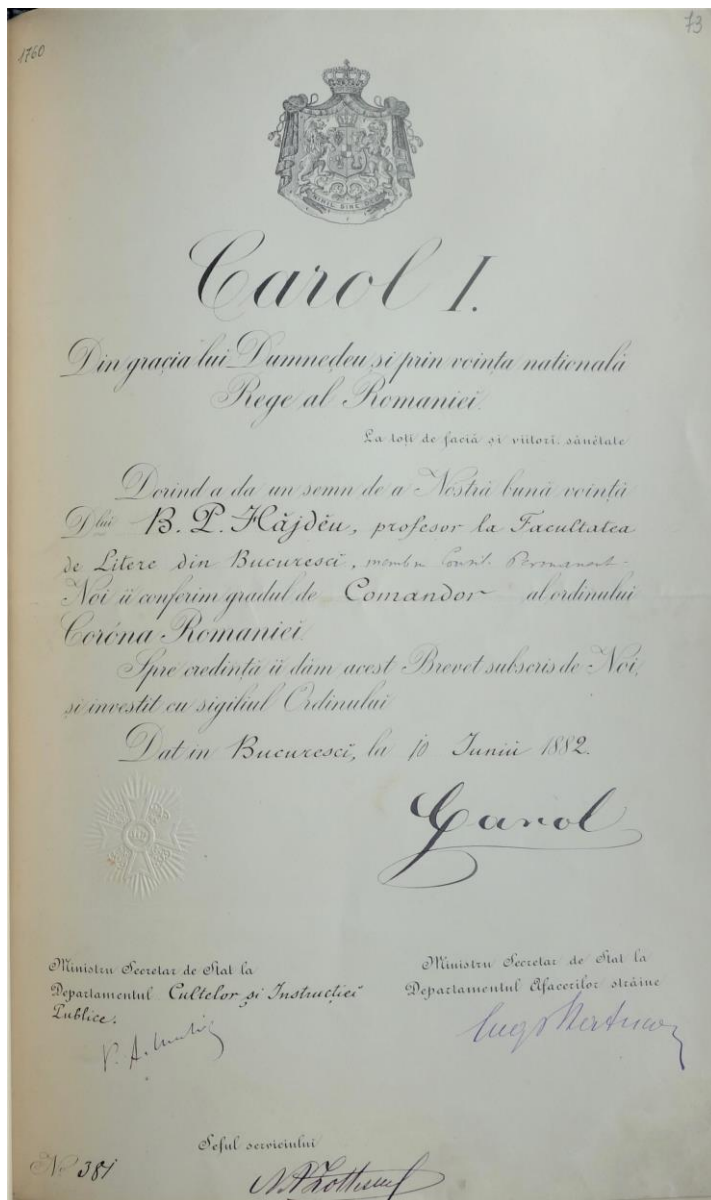 1760
73
NIHIL SINE DEO
Carol I.
Din grația lui Dumnedeu și prin voința natională
Rege al Romaniei.
La toți de faciă și viitori, sănĕtate
Dorind a da un semn de a Nostră bună voință
Dlui B. P. Hăjdĕu, profesor la Facultatea
de Litere din Bucurescĭ, membru Consil. Permanent.
Noi ii conferim gradul de Comandor al ordinului
Coróna Romaniei.
Spre credință ii dăm acest Brevet subscris de Noi,
și investit cu sigiliul Ordinului
Dat in Bucurescĭ, la 10 Iuniŭ 1882.
Carol
Ministru Secretar de Stat la
Departamentul Cultelor și Instrucțieĭ
Publice.
Ministru Secretar de Stat la
Departamentul Afacerilor străine
Șeful serviciului
No 381